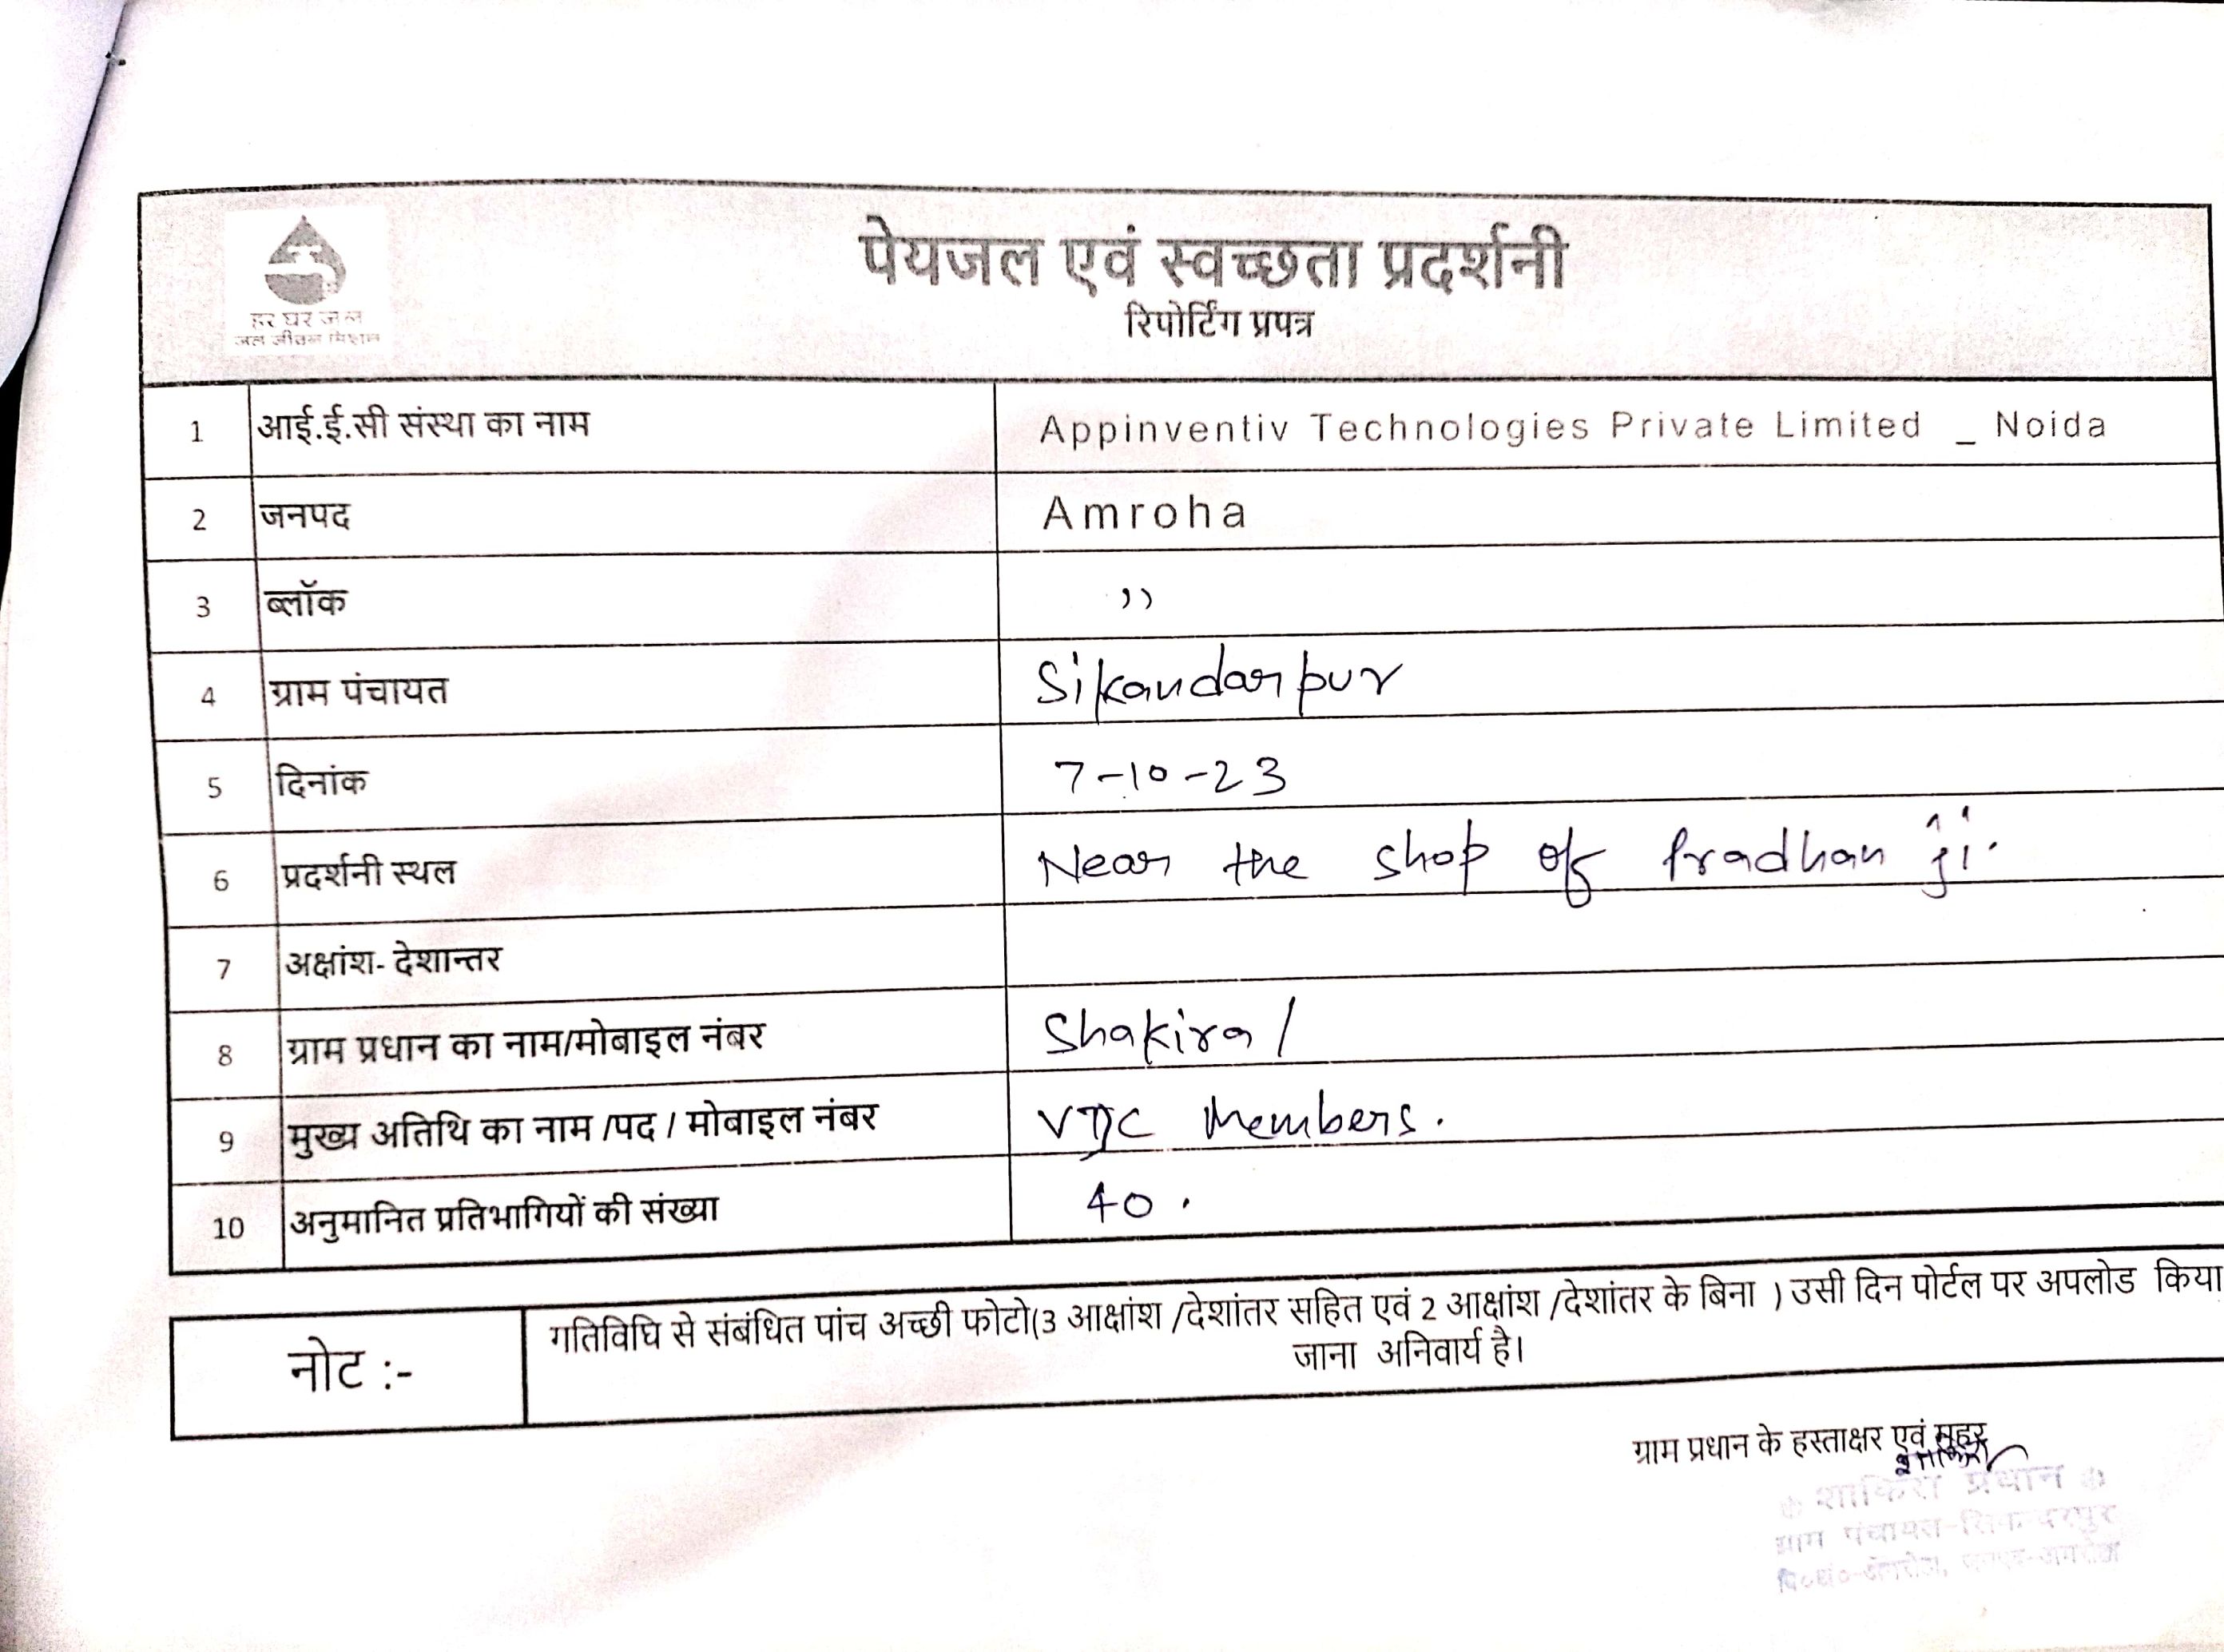 हर घर जल
जल जीवन मिशन
पेयजल एवं स्वच्छता प्रदर्शनी
रिपोर्टिंग प्रपत्र
1 आई.ई.सी संस्था का नाम Appinventiv Technologies Private Limited _ Noida
2 जनपद Amroha
3 ब्लॉक ,,
4 ग्राम पंचायत Sikandarpur
5 दिनांक 7-10-23
6 प्रदर्शनी स्थल Near the shop of Pradhan ji.
7 अक्षांश- देशान्तर
8 ग्राम प्रधान का नाम/मोबाइल नंबर Shakira /
9 मुख्य अतिथि का नाम /पद / मोबाइल नंबर members.
10 अनुमानित प्रतिभागियों की संख्या 40.
नोट :- गतिविघि से संबंधित पांच अच्छी फोटो(3 आक्षांश /देशांतर सहित एवं 2 आक्षांश /देशांतर के बिना ) उसी दिन पोर्टल पर अपलोड किया
जाना अनिवार्य है।
ग्राम प्रधान के हस्ताक्षर एवं मुहर
शाकिरा
शाकिरा प्रधान
ग्राम पंचायत-सिकन्दरपुर